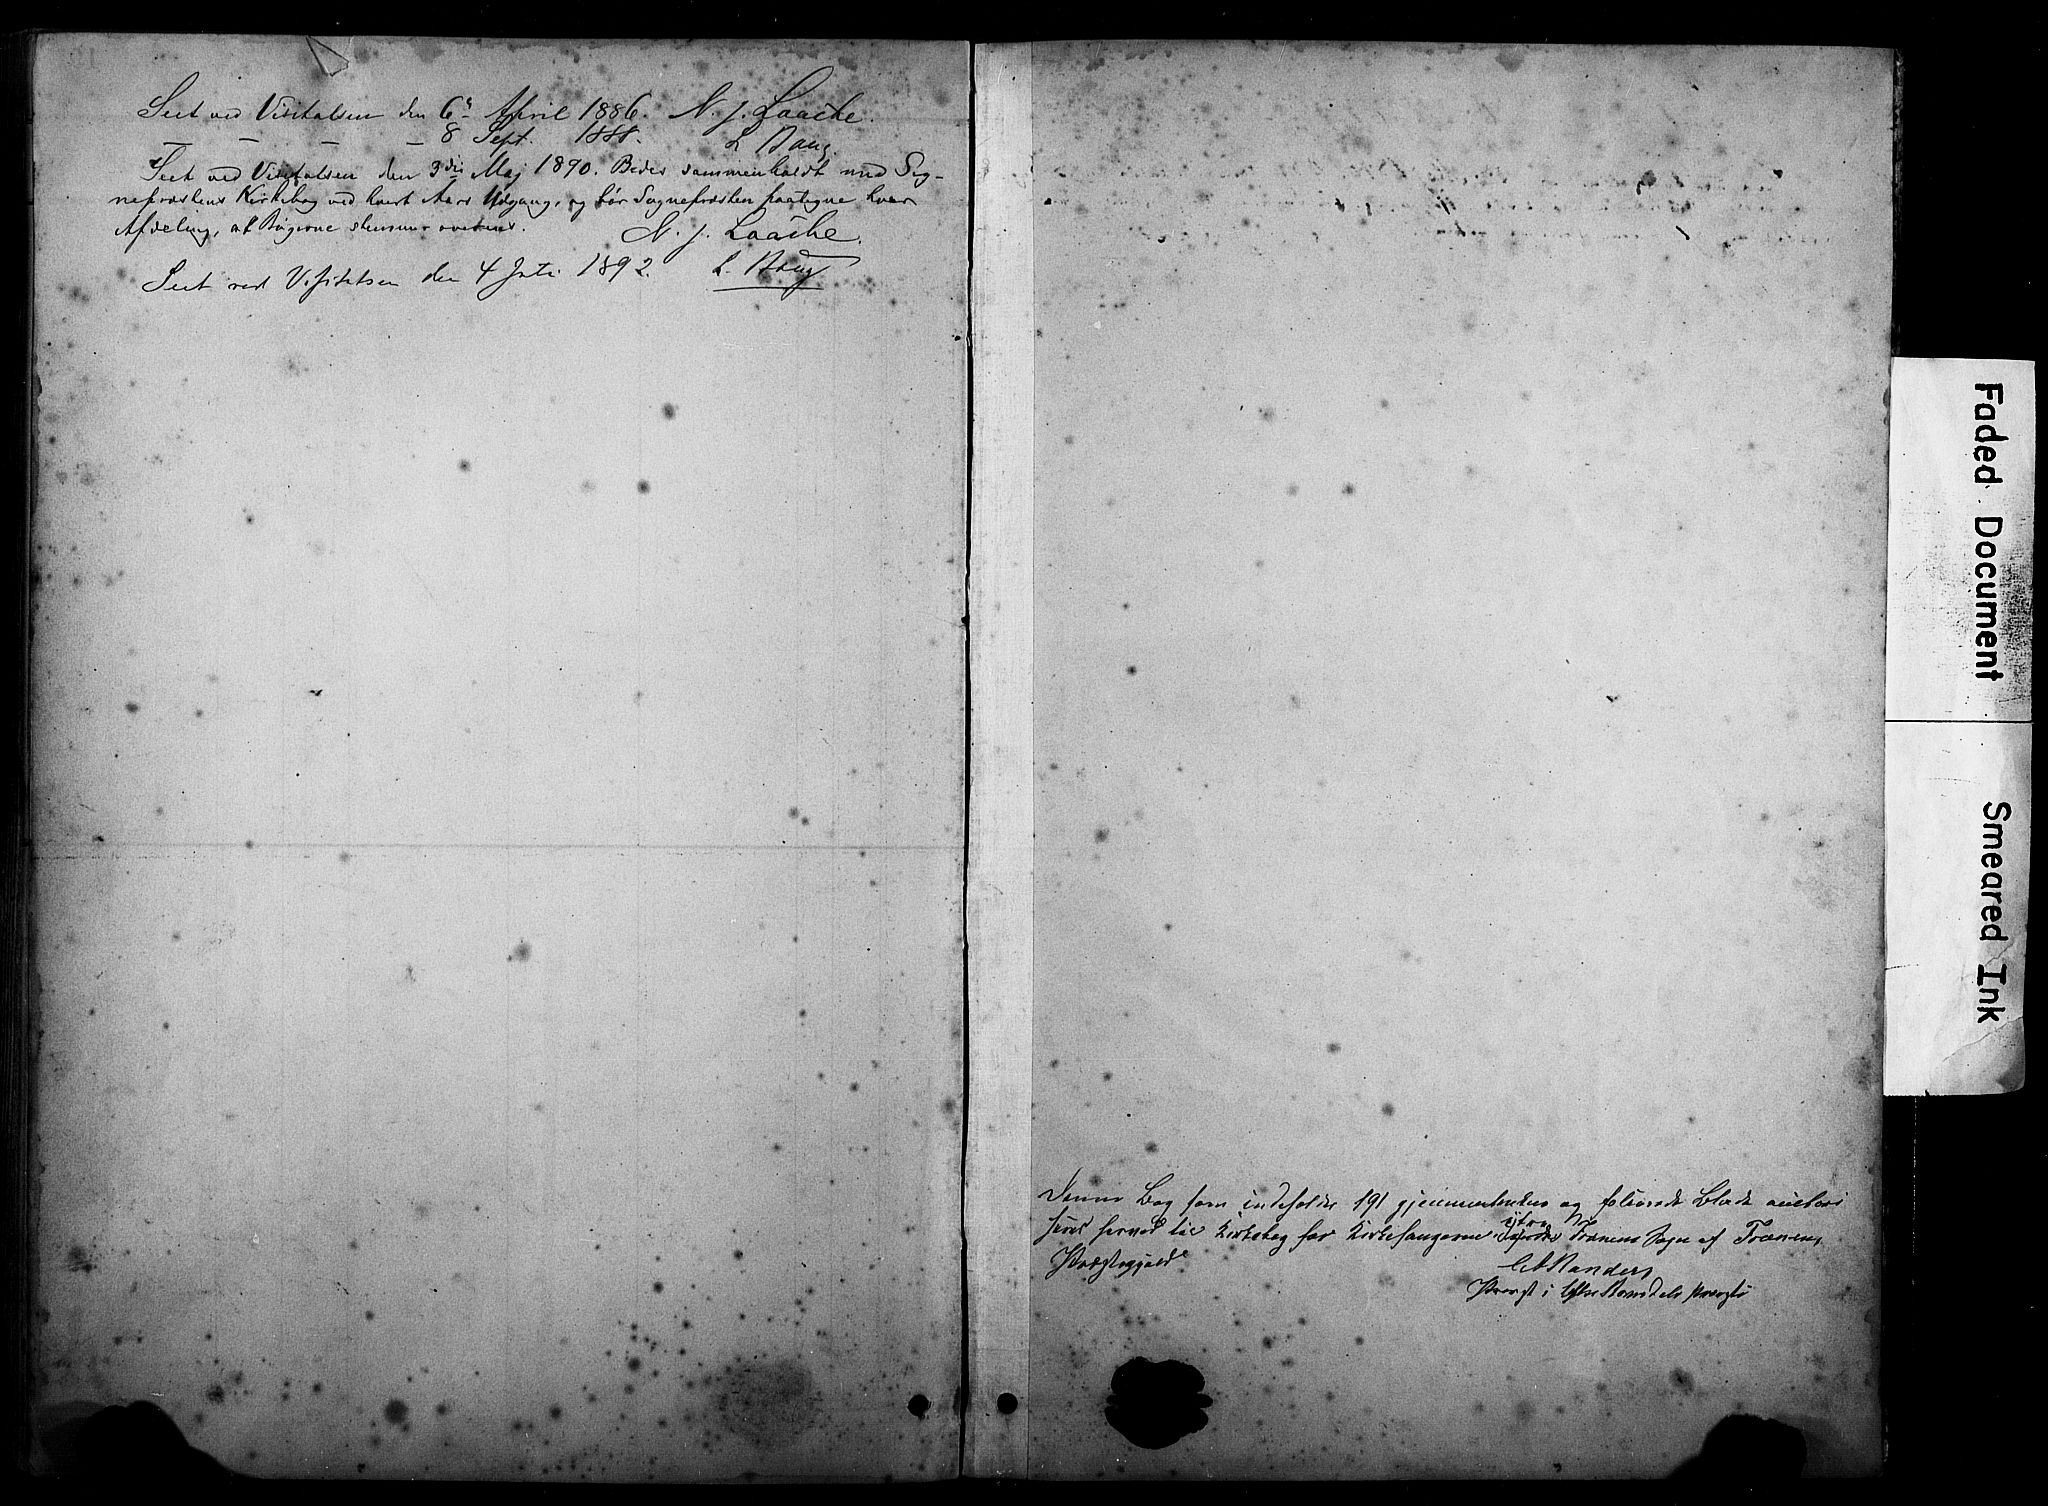 Seet ved Visitatsen den 6te April 1886. N. J. Laache.
— — — — 8 Sept. 1888. L Daae
Seet ved Visitatsen den 3die Maj 1890. Bedes sammenholdt med Sog-
nepræstens Kirkebog ved hvert Aars Udgang, og bør Sognepræsten paategne hver
Afdeling, at Bøgerne stemme overens. N. J. Laache.
Seet ved Visitatsen den 4 Juli 1892.
Denne Bog som indeholder 191 gjennemtrukne og folierede Blade autori
seres herved til Kirkebog for Kirkesangeren i Trænens Sogn af Trænens
Præstegjeld
Randers
Provst i Provsti
Faded Document
Smeared Ink